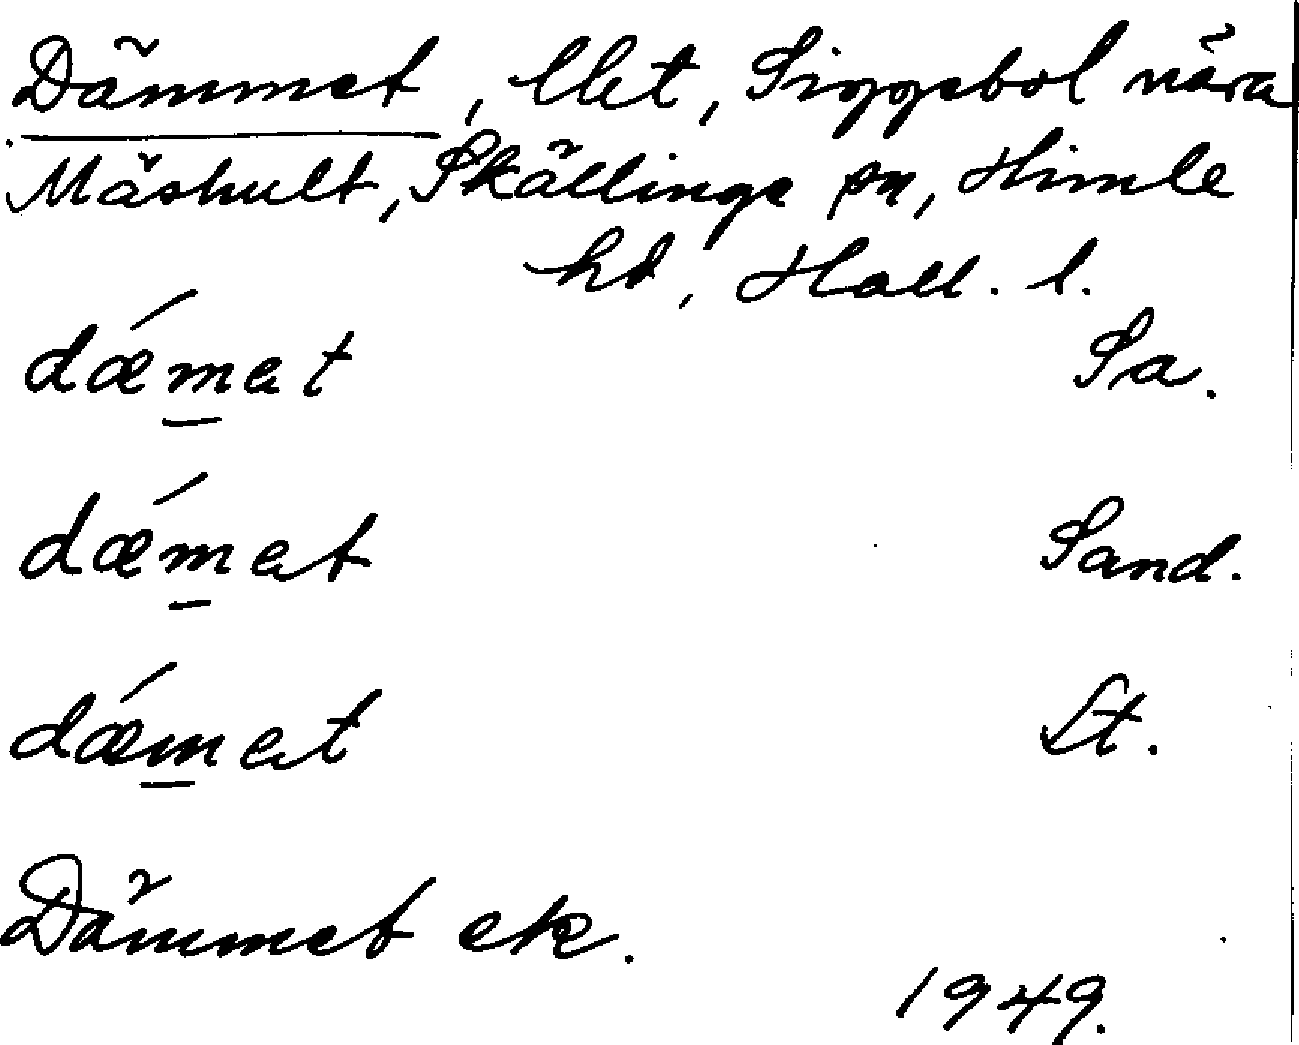 Dämmet, llet, Siggebol nära
Mäshult, Skällinge sn, Himle
hd, Hall. l.
dǽmat Sa.
dǽmat Sand.
dǽmat St.
Dämmet ek.
1949.